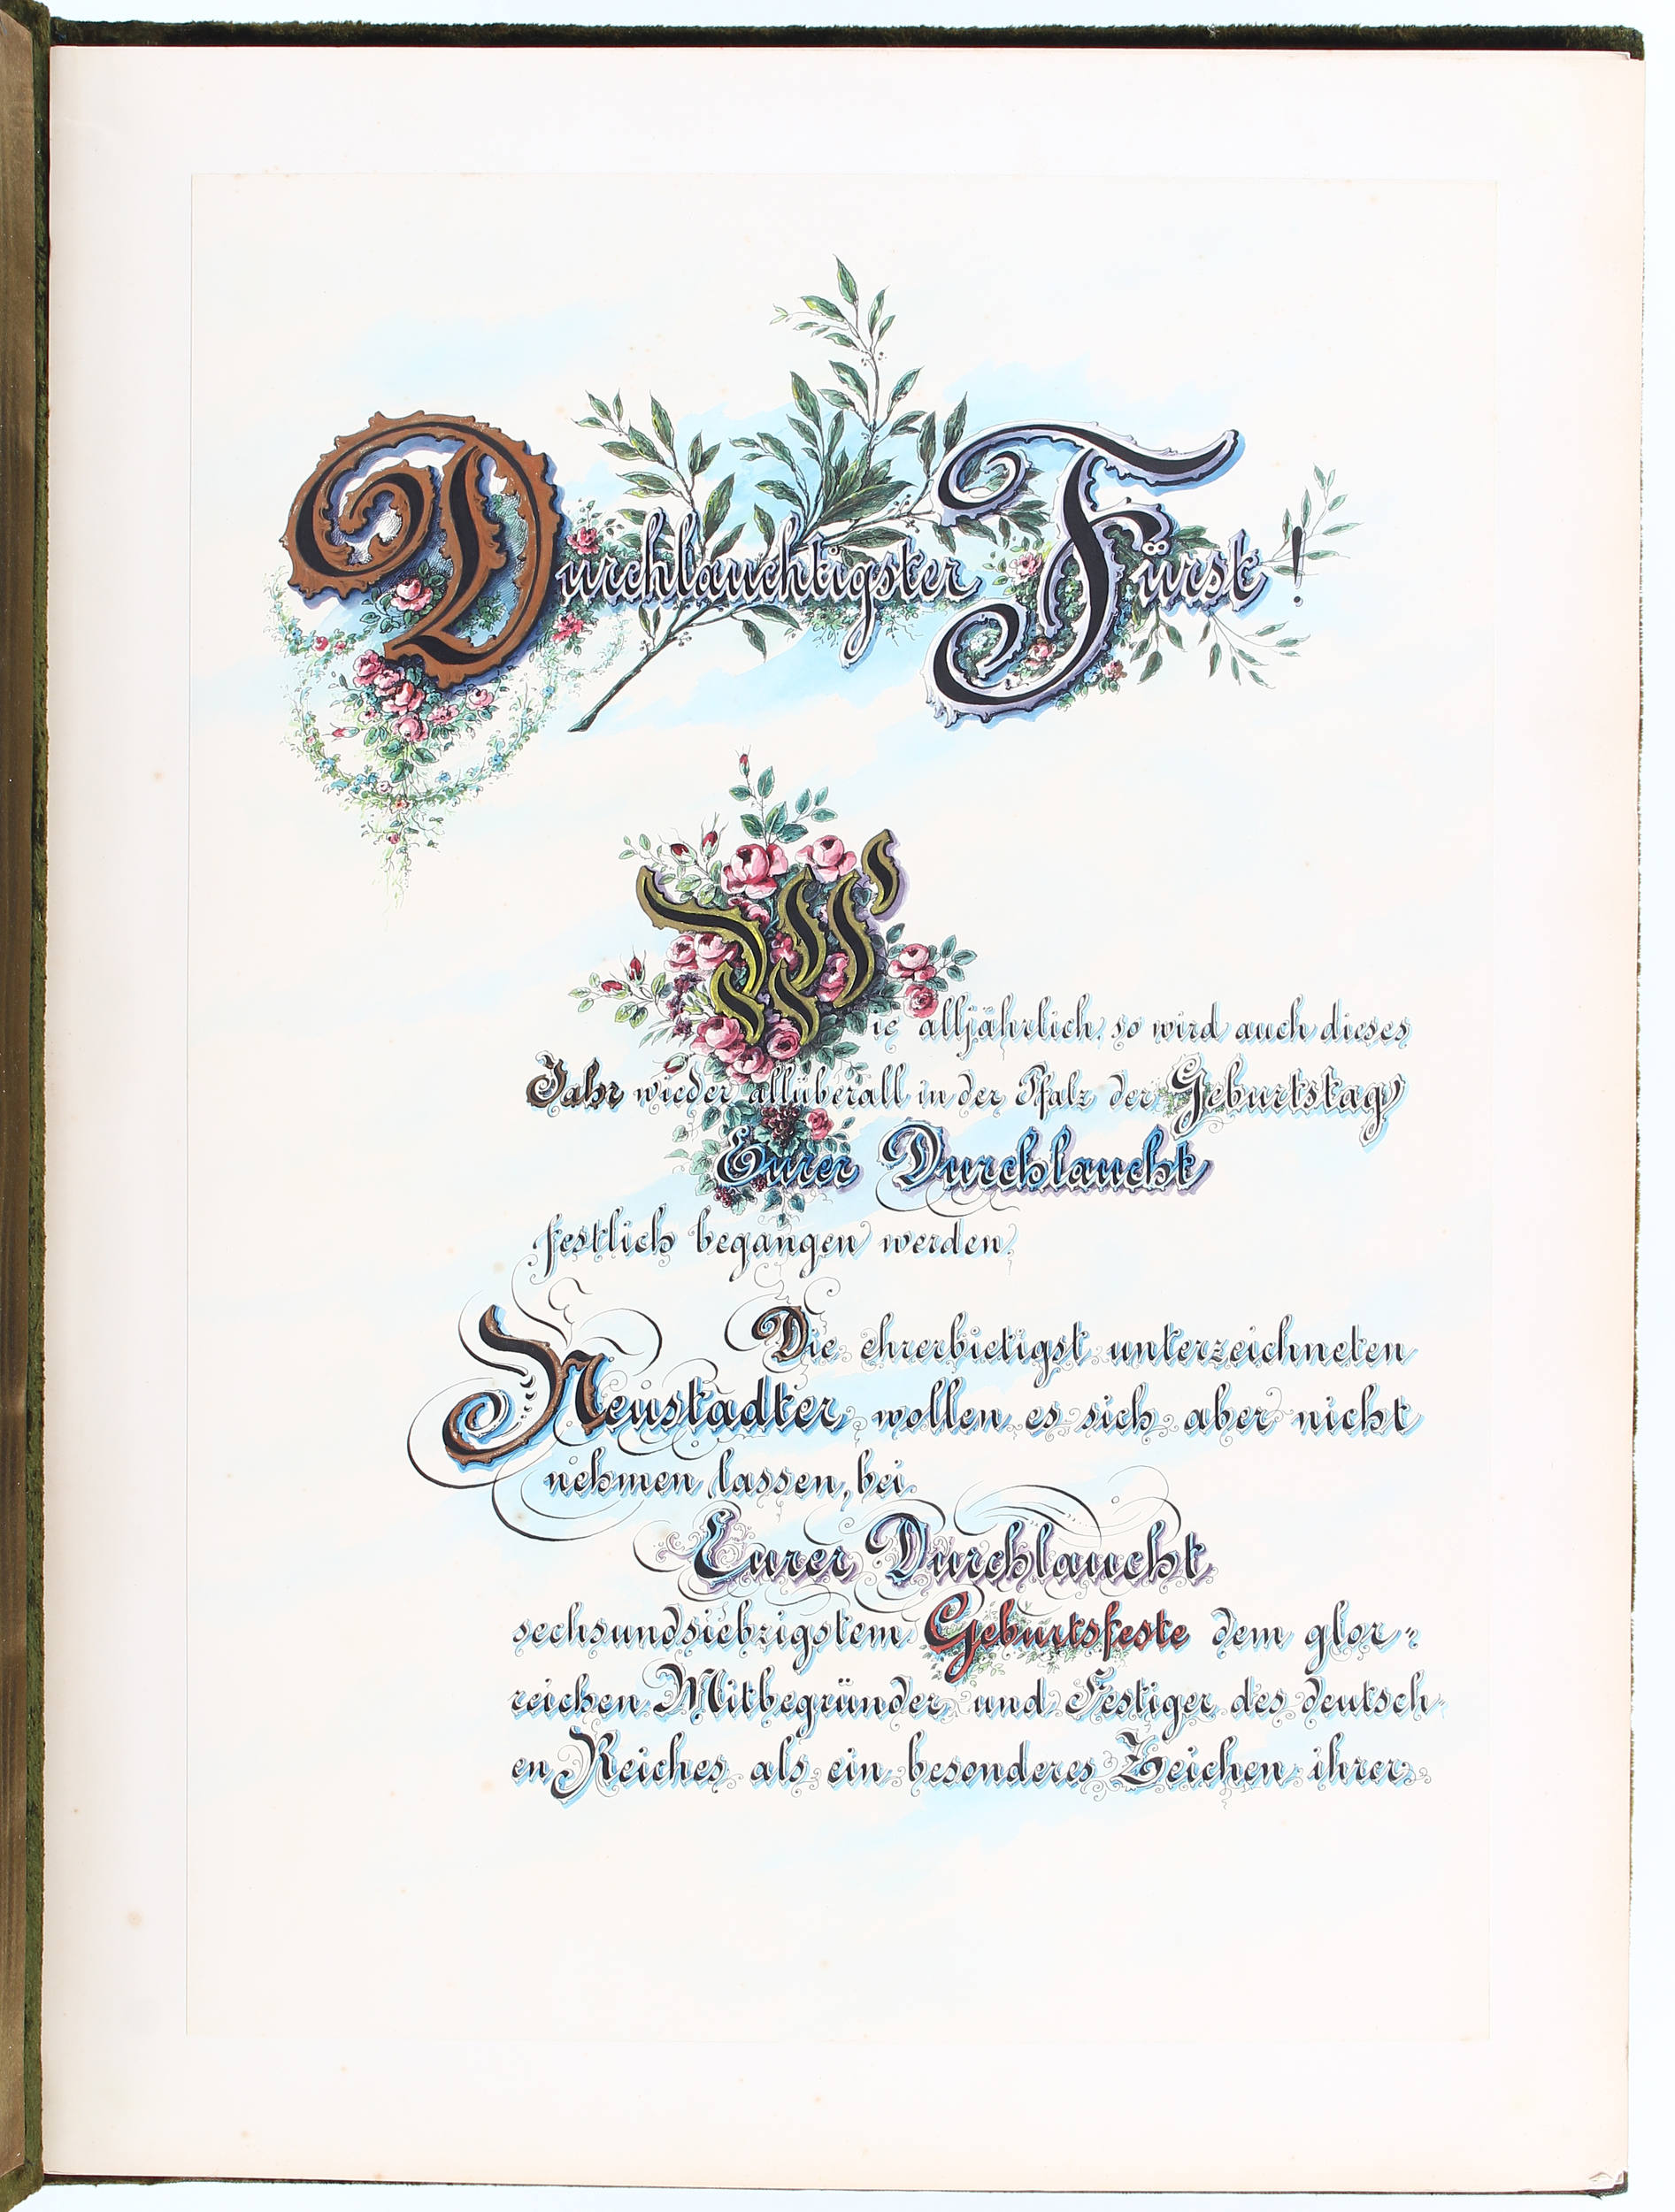 Durchlauchtigster Fürst!
Wie alljährlich, so wird auch dieses
Jahr wieder allüberall in der Pfalz der Geburtstag
Eurer Durchlaucht
festlich begangen werden.
Die ehrerbietigst unterzeichneten
Neustadter wollen es sich aber nicht
nehmen lassen, bei
Eurer Durchlaucht
sechsundsiebzigstem Geburtsfeste dem glor-
reichen Mitbegründer und Festiger des deutsch-
en Reiches als ein besonderes Zeichen ihrer